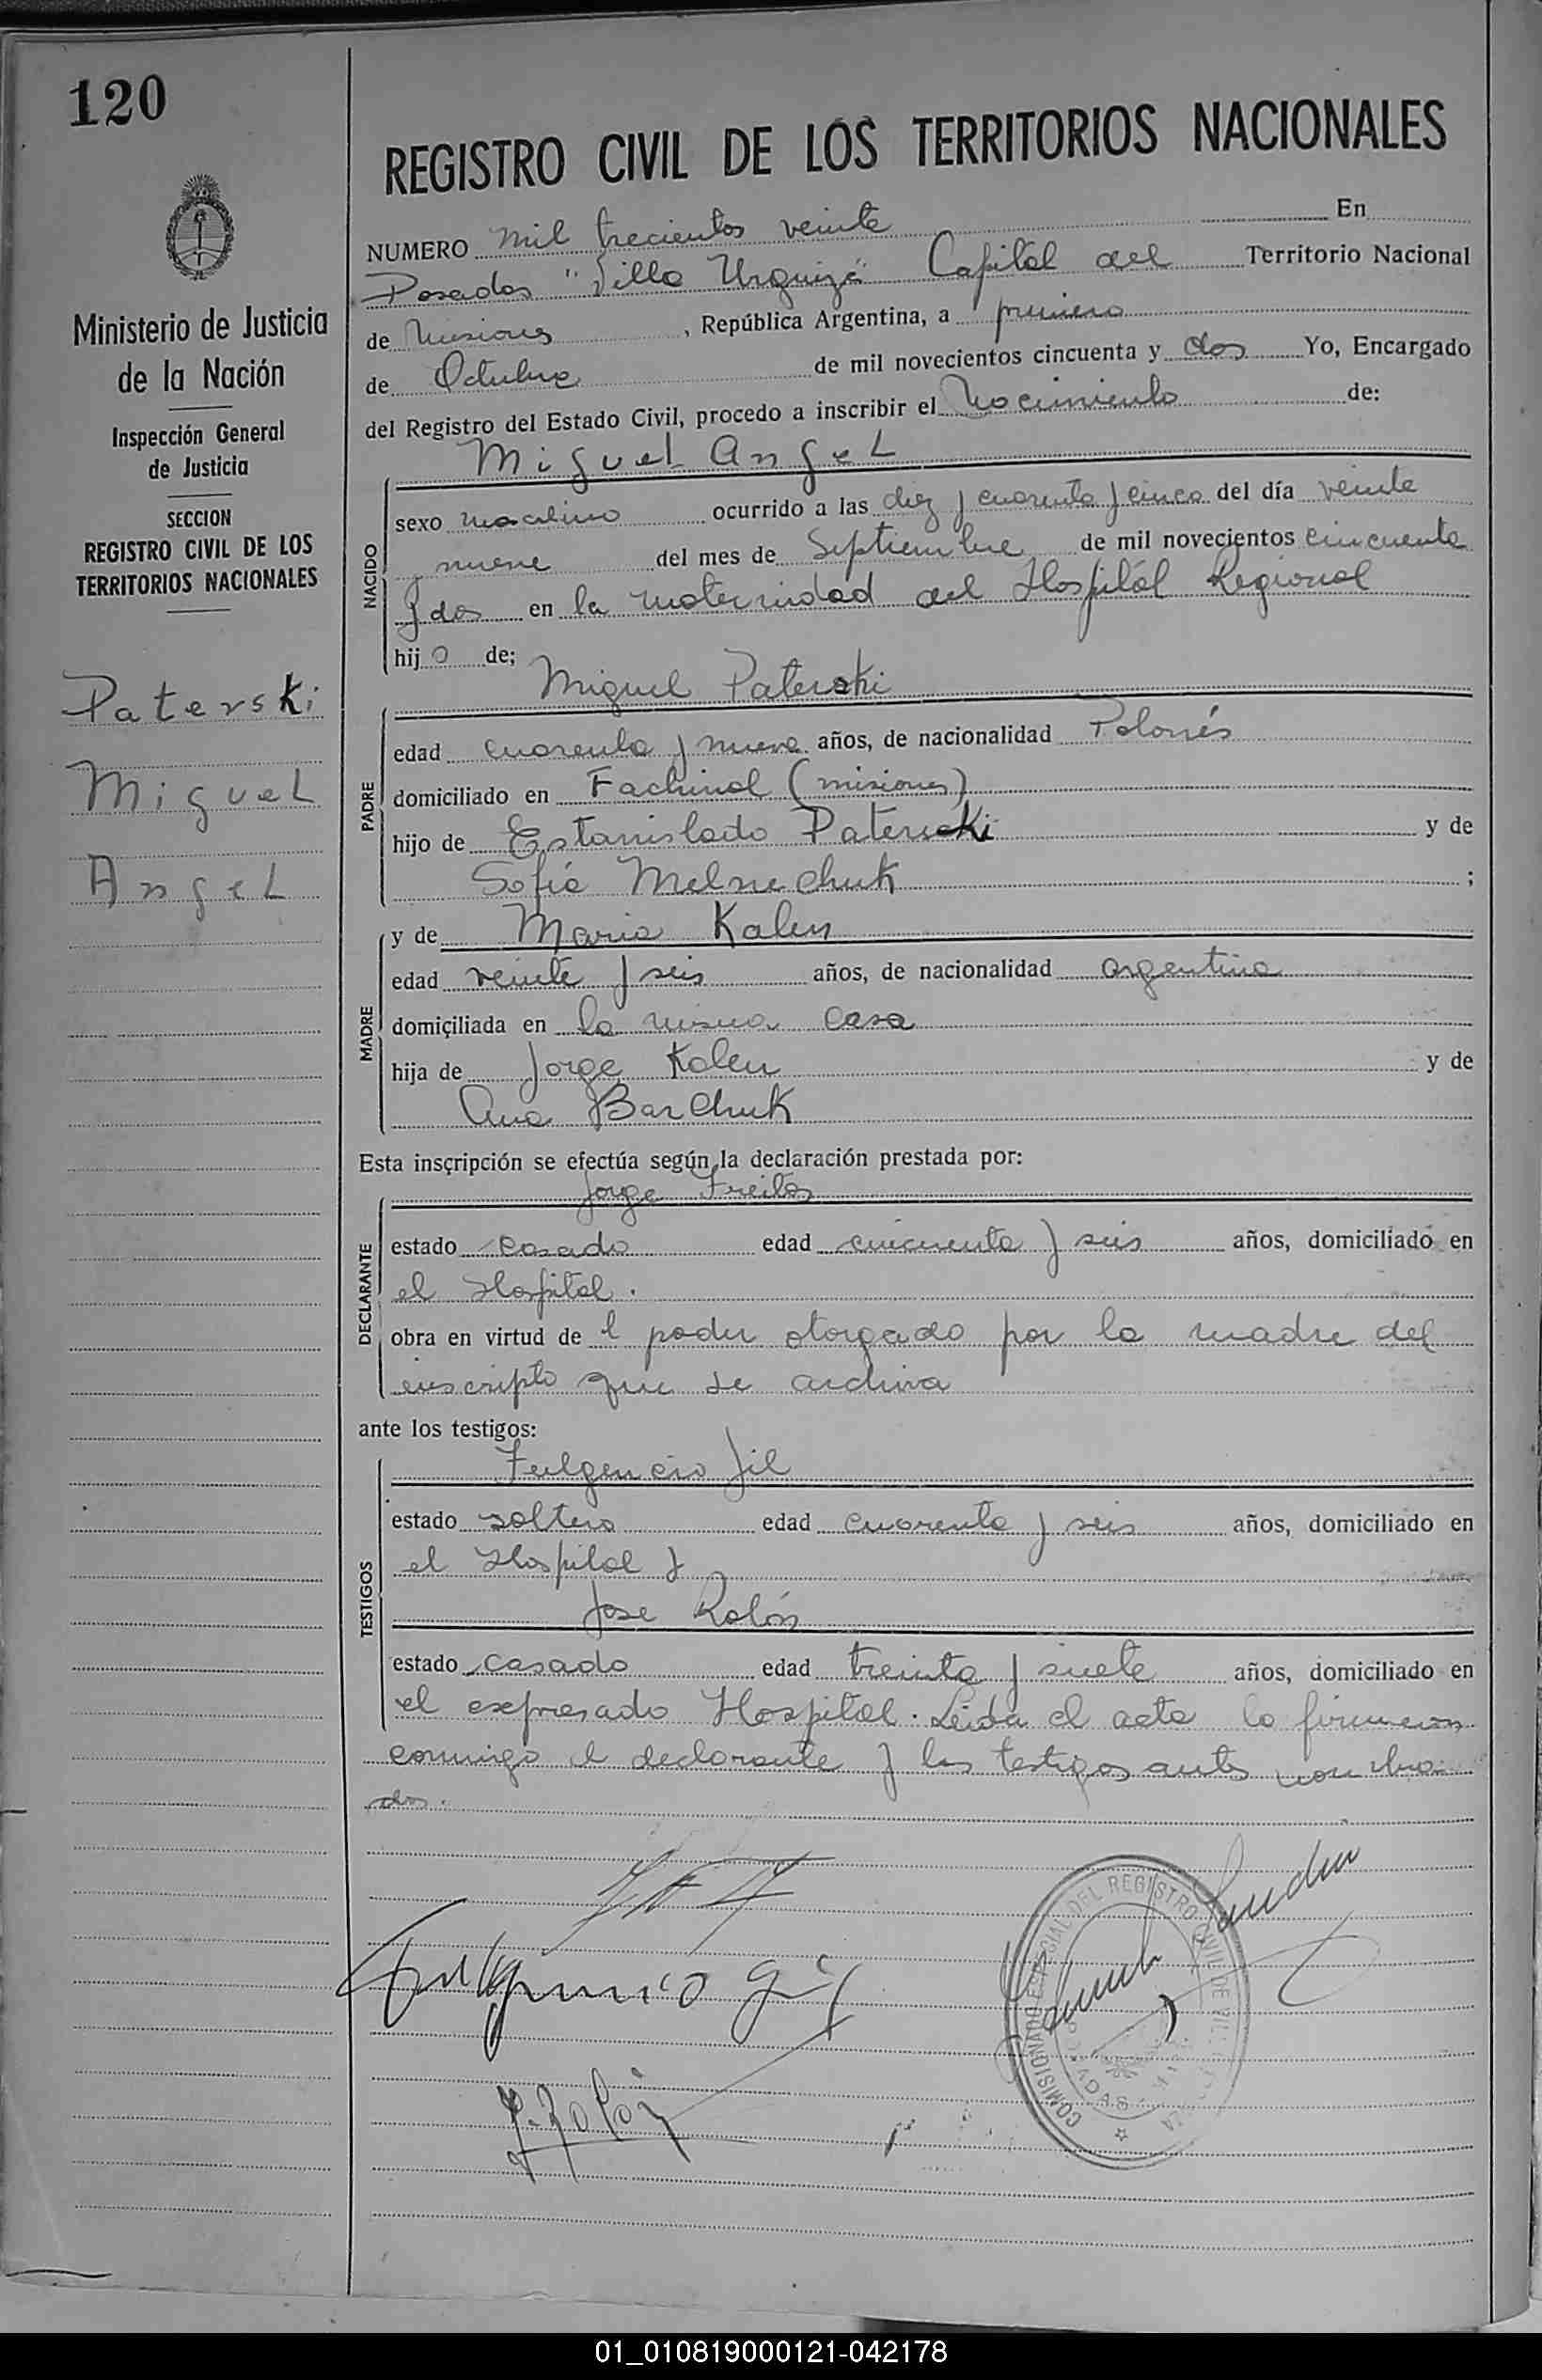 120
REGISTRO CIVIL DE LOS TERRITORIOS NACIONALES
Ministerio de Justicia
de la Nación
Inspección General
de Justicia
SECCION
REGISTRO CIVIL DE LOS
TERRITORIOS NACIONALES
Paterski
Miguel
Angel
NUMERO mil trecientos veinte En
Posadas "Villa Urquiza" Capital del Territorio Nacional
de Misiones, República Argentina, a primero
de Octubre de mil novecientos cincuenta y dos Yo, Encargado
del Registro del Estado Civil, procedo a inscribir el Nacimiento de:
Miguel Angel
NACIDO
sexo masculino ocurrido a las diez y cuarenta y cinco del día veinte
y nueve del mes de Septiembre de mil novecientos cincuenta
y dos en la maternidad del Hospital Regional
hijo de;
Miguel Paterski
PADRE
edad cuarenta y nueve años, de nacionalidad Polonés
domiciliado en Fachinal (misiones)
hijo de Estanislado Paterski y de
Sofía Melnechuk ;
MADRE
y de Maria Kalen
edad veinte y seis años, de nacionalidad argentina
domiciliada en la misma casa
hija de Jorge Kalen y de
Ana Barchuk
Esta inscripción se efectúa según la declaración prestada por:
DECLARANTE
Jorge Freitas
estado casado edad cincuenta y seis años, domiciliado en
el Hospital.
obra en virtud de l poder otorgado por la madre del
inscripto que se archiva
ante los testigos:
TESTIGOS
Fulgencio Jil
estado soltero edad cuarenta y seis años, domiciliado en
el Hospital y
Jose Rolón
estado casado edad treinta y siete años, domiciliado en
el expresado Hospital. Leida el acta la firmaron
conmigo el declarante y los testigos antes nombra-
dos.
Fulgencio Gil
J. Rolón
COMISIONADO DEL REGISTRO CIVIL DE
01_010819000121-042178